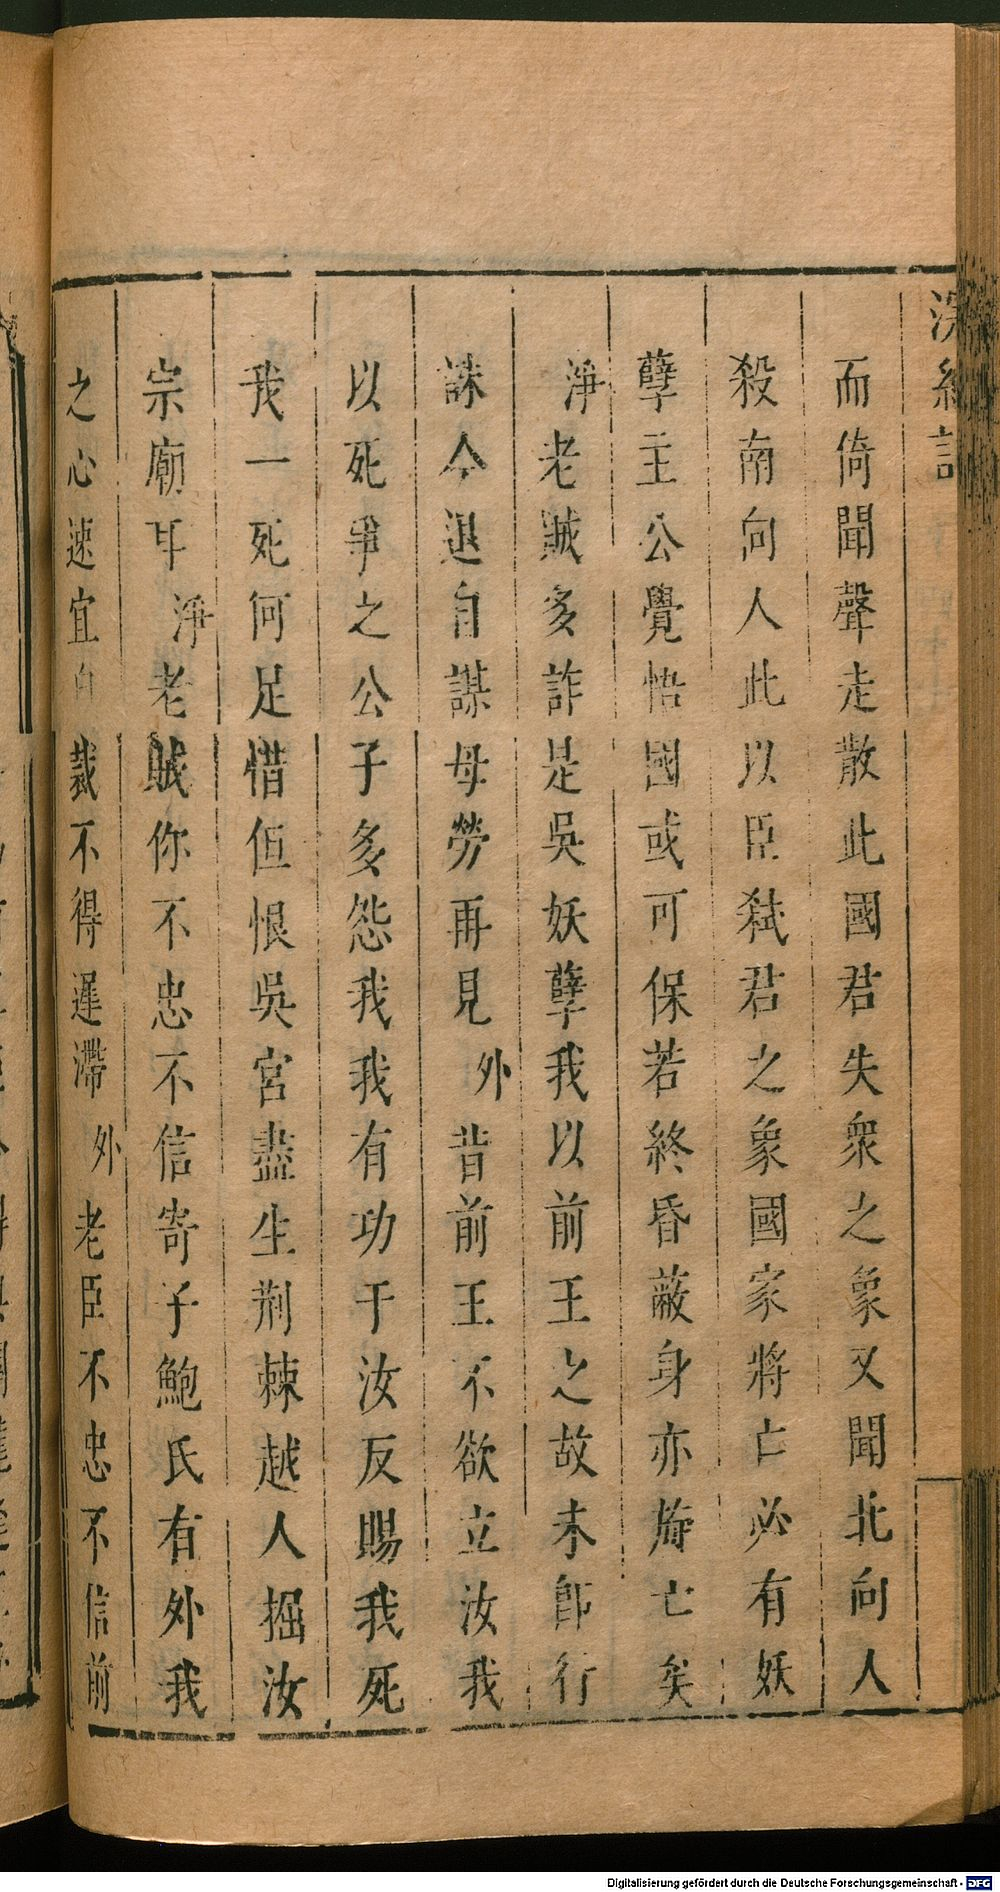 浣紗記
而倚聞聲走散此國君失衆之象又聞北向人
殺南向人此以臣弑君之象國家將亡必有妖
孽主公覺悟國或可保若終昏蔽身亦旋亡矣
淨老賊多詐是吳妖孽我以前王之故未卽行
誅今退自謀毋勞再見外昔前王不欲立汝我
以死爭之公子多怨我我有功于汝反賜我死
我一死何足惜但恨吳宮盡生荆棘越人掘汝
宗廟耳淨老賊你不忠不信寄子鮑氏有外我
之心速宜自裁不得遲滯外老臣不忠不信前
Digitalisierung gefördert durch die Deutsche Forschungsgemeinschaft - DFG